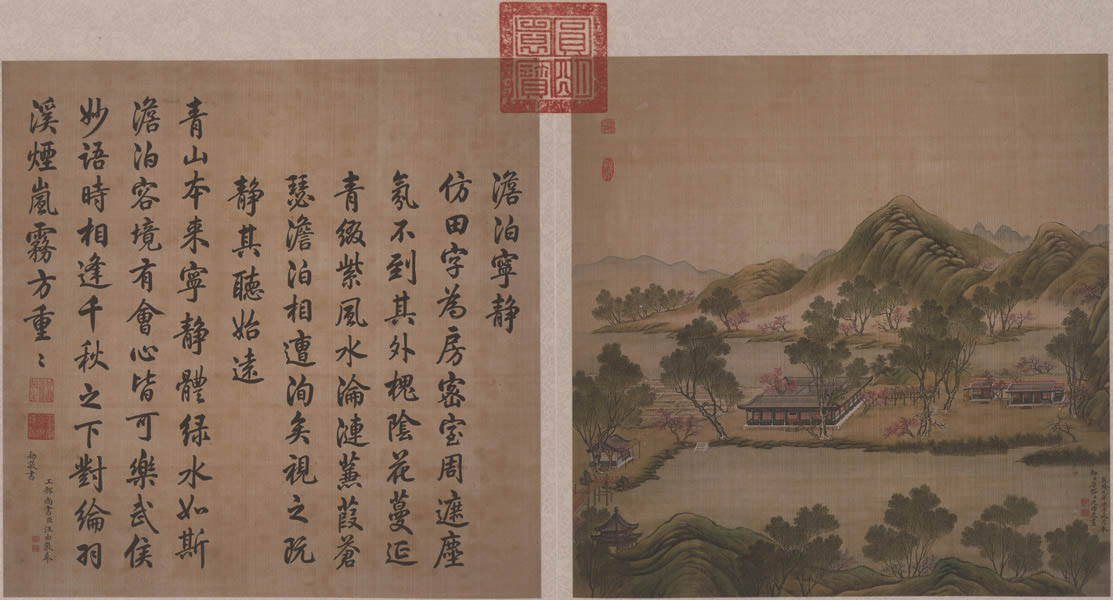 圓明園寶
澹泊寧靜
仿田字為房密室周遮塵
氛不到其外槐陰花蔓延
青綴紫風水淪漣蒹葭蒼
瑟澹泊相遭洵矣視之既
靜其聽始遠
青山本來寧靜體綠水如斯
澹泊容境有會心皆可樂武侯
妙語時相逢千秋之下對綸羽
溪煙嵐霧方重〻
工部尚書臣汪由敦奉
勅敬書